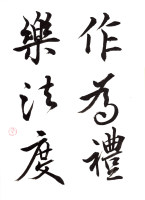 作為禮
樂法度